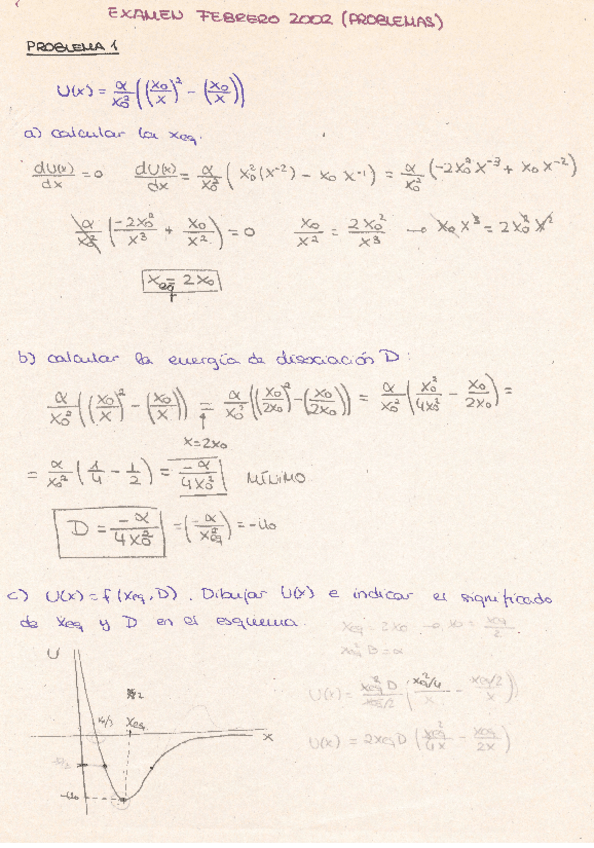 EXAMEN FEBRERO 2002 (PROBLEMAS)
PROBLEMA 1
U(x) = α/x₀² ((x₀/x)² - (x₀/x))
a) calcular la xeq.
dU(x)/dx = 0   dU(x)/dx = α/x₀² (x₀²(x⁻²) - x₀ x⁻¹) = α/x₀² (-2x₀² x⁻³ + x₀ x⁻²)
α/x₀² (-2x₀²/x³ + x₀/x²) = 0   x₀/x² = 2x₀²/x³ → x₀ x³ = 2x₀² x²
xeq = 2x₀
b) calcular la energía de disociación D:
α/x₀² ((x₀/x)² - (x₀/x)) = α/x₀² ((x₀/2x₀)² - (x₀/2x₀)) = α/x₀² (x₀²/4x₀² - x₀/2x₀) =
↑
x=2x₀
= α/x₀² (1/4 - 1/2) = -α/4x₀² MÍNIMO
D = -α/4x₀² = (-α/x²eq) = -U₀
c) U(x) = f(xeq, D). Dibujar U(x) e indicar el significado
de xeq y D en el esquema.
xeq = 2x₀ → x₀ = xeq/2
xeq² D = α
U
xeq
x
-U₀
U(x) = xeq² D/xeq/2 (xeq²/4/x - xeq/2/x)
U(x) = 2xeq D (xeq²/4x - xeq/2x)